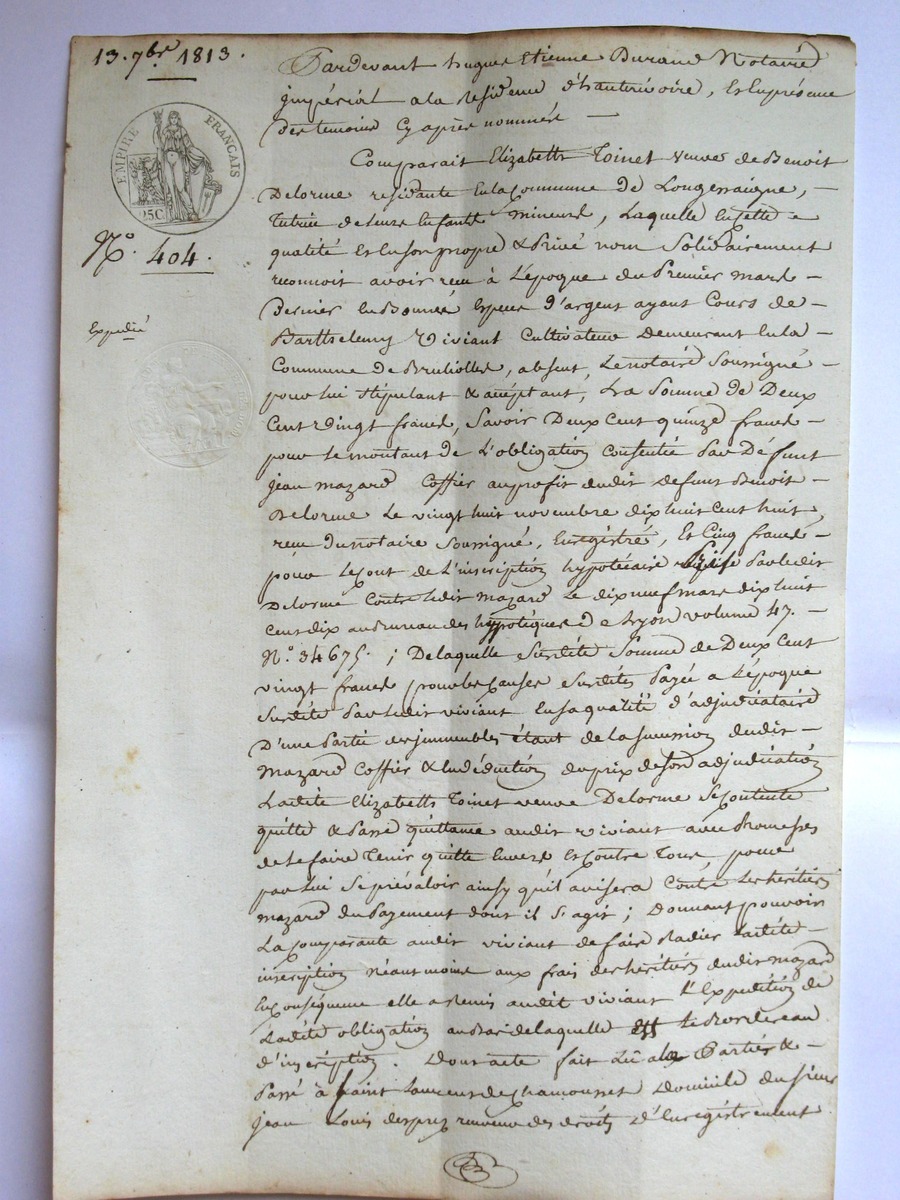 13. 7bre 1813.
EMPIRE FRANÇAIS
25C
N.° 404.
Expédié
Pardevant hugues Etienne Durand Notaire
jmpérial a la Residence d'hauterivoire, Et En présence
des temoins Cy après nommés —
Comparait Elizabeth Toinet veuve de Benoit
Delorme residante En la Commune de Longessaigne, —
tutrice de ses Enfants mineurs, Laquelle En cette
qualité Et En son propre & Privé nom Solidairement
reconnoit avoir reçu à L'époque du Premier mars —
Dernier En Bonnes Especes d'argent ayant Cours de —
Barthelemy Viviant Cultivateur Demeurant En la —
Commune de Brullolles, absent, Le notaire Soussigné —
pour lui Stipulant & acceptant, La Somme de Deux
Cent vingt francs, Savoir Deux Cent quinze francs —
pour Le montant de L'obligation Consentie Par Défunt
jean mazard Coffier au profit dudit defunt Benoit —
Delorme Le vingt huit novembre dix huit cent huit,
reçue du notaire Soussigné, Enregistré, Et Cinq francs —
pour Le Cout de L'inscription hypotécaire Prise Par ledit
Delorme Contre Ledit mazard Le dix neuf mars dix huit
cent dix au Bureau des hypotèques de Lyon volume 47. —
N.° 34675. ; De laquelle Susdite Somme de Deux Cent
vingt francs pour les Causes Susdites Payée a L'époque
Susdite Par Ledit viviant En sa qualité d'adjudicataire
D'une Partie des jmmeubles étant de la Succession dudit —
mazard Coffier & En déduction du prix de son adjudication
Ladite Elizabeth Toinet veuve Delorme Se Contente
quitte & Passe quittance audit viviant avec Promesses
de Le faire Tenir quitte Envers Et Contre Tous, pour
par Lui Se prévaloir ainsy qu'il avisera Contre Les heritiers
mazard du Payement dont il S'agit ; Donnant pouvoir
La Comparante audit viviant de faire Radier Ladite —
inscription néantmoins aux frais des heritiers dudit mazard
En Conséquence elle a Remis audit viviant L'Expédition de
Ladite obligation au Bas de laquelle Est Le Bordereau
d'inscription. Dont acte fait Lû aux Parties & —
Passé à Saint Laurent de Chamousset Domicile du Sieur
jean Louis desprez receveur des droits d'Enregistrement